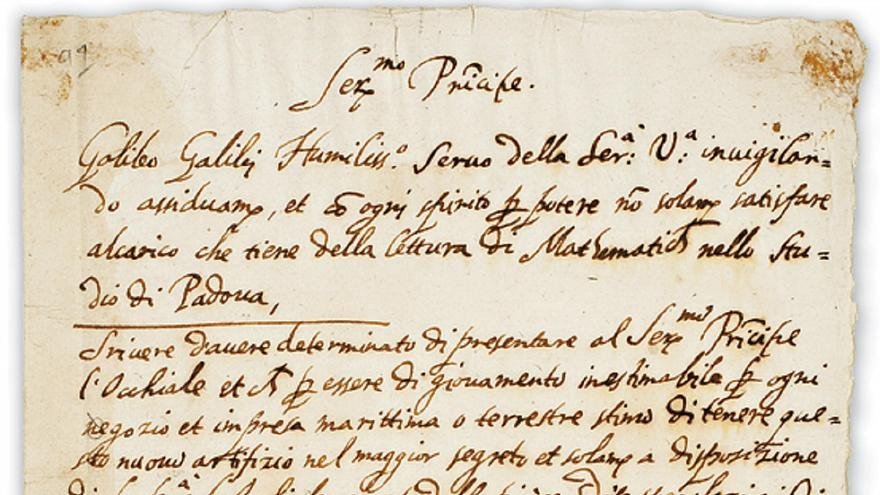 91
Ser.mo Prĩcipe.
Galileo Galilei Humiliss.o Seruo della Ser.a V.a inuigilan=
do assiduam., et cõ ogni spirito p potere nõ solam satisfare
alcarico che tiene della lettura di Mathematich nello Stu=
dio di Padoua,
Scriuere dauere determinato di presentare al Ser.mo Prĩcipe
l'Occhiale et ch p essere di giouamento inestimabile p ogni
negozio et impresa marittima o terrestre stimo di tenere que=
sto nuouo artifizio nel maggior segreto et solam a disposizione